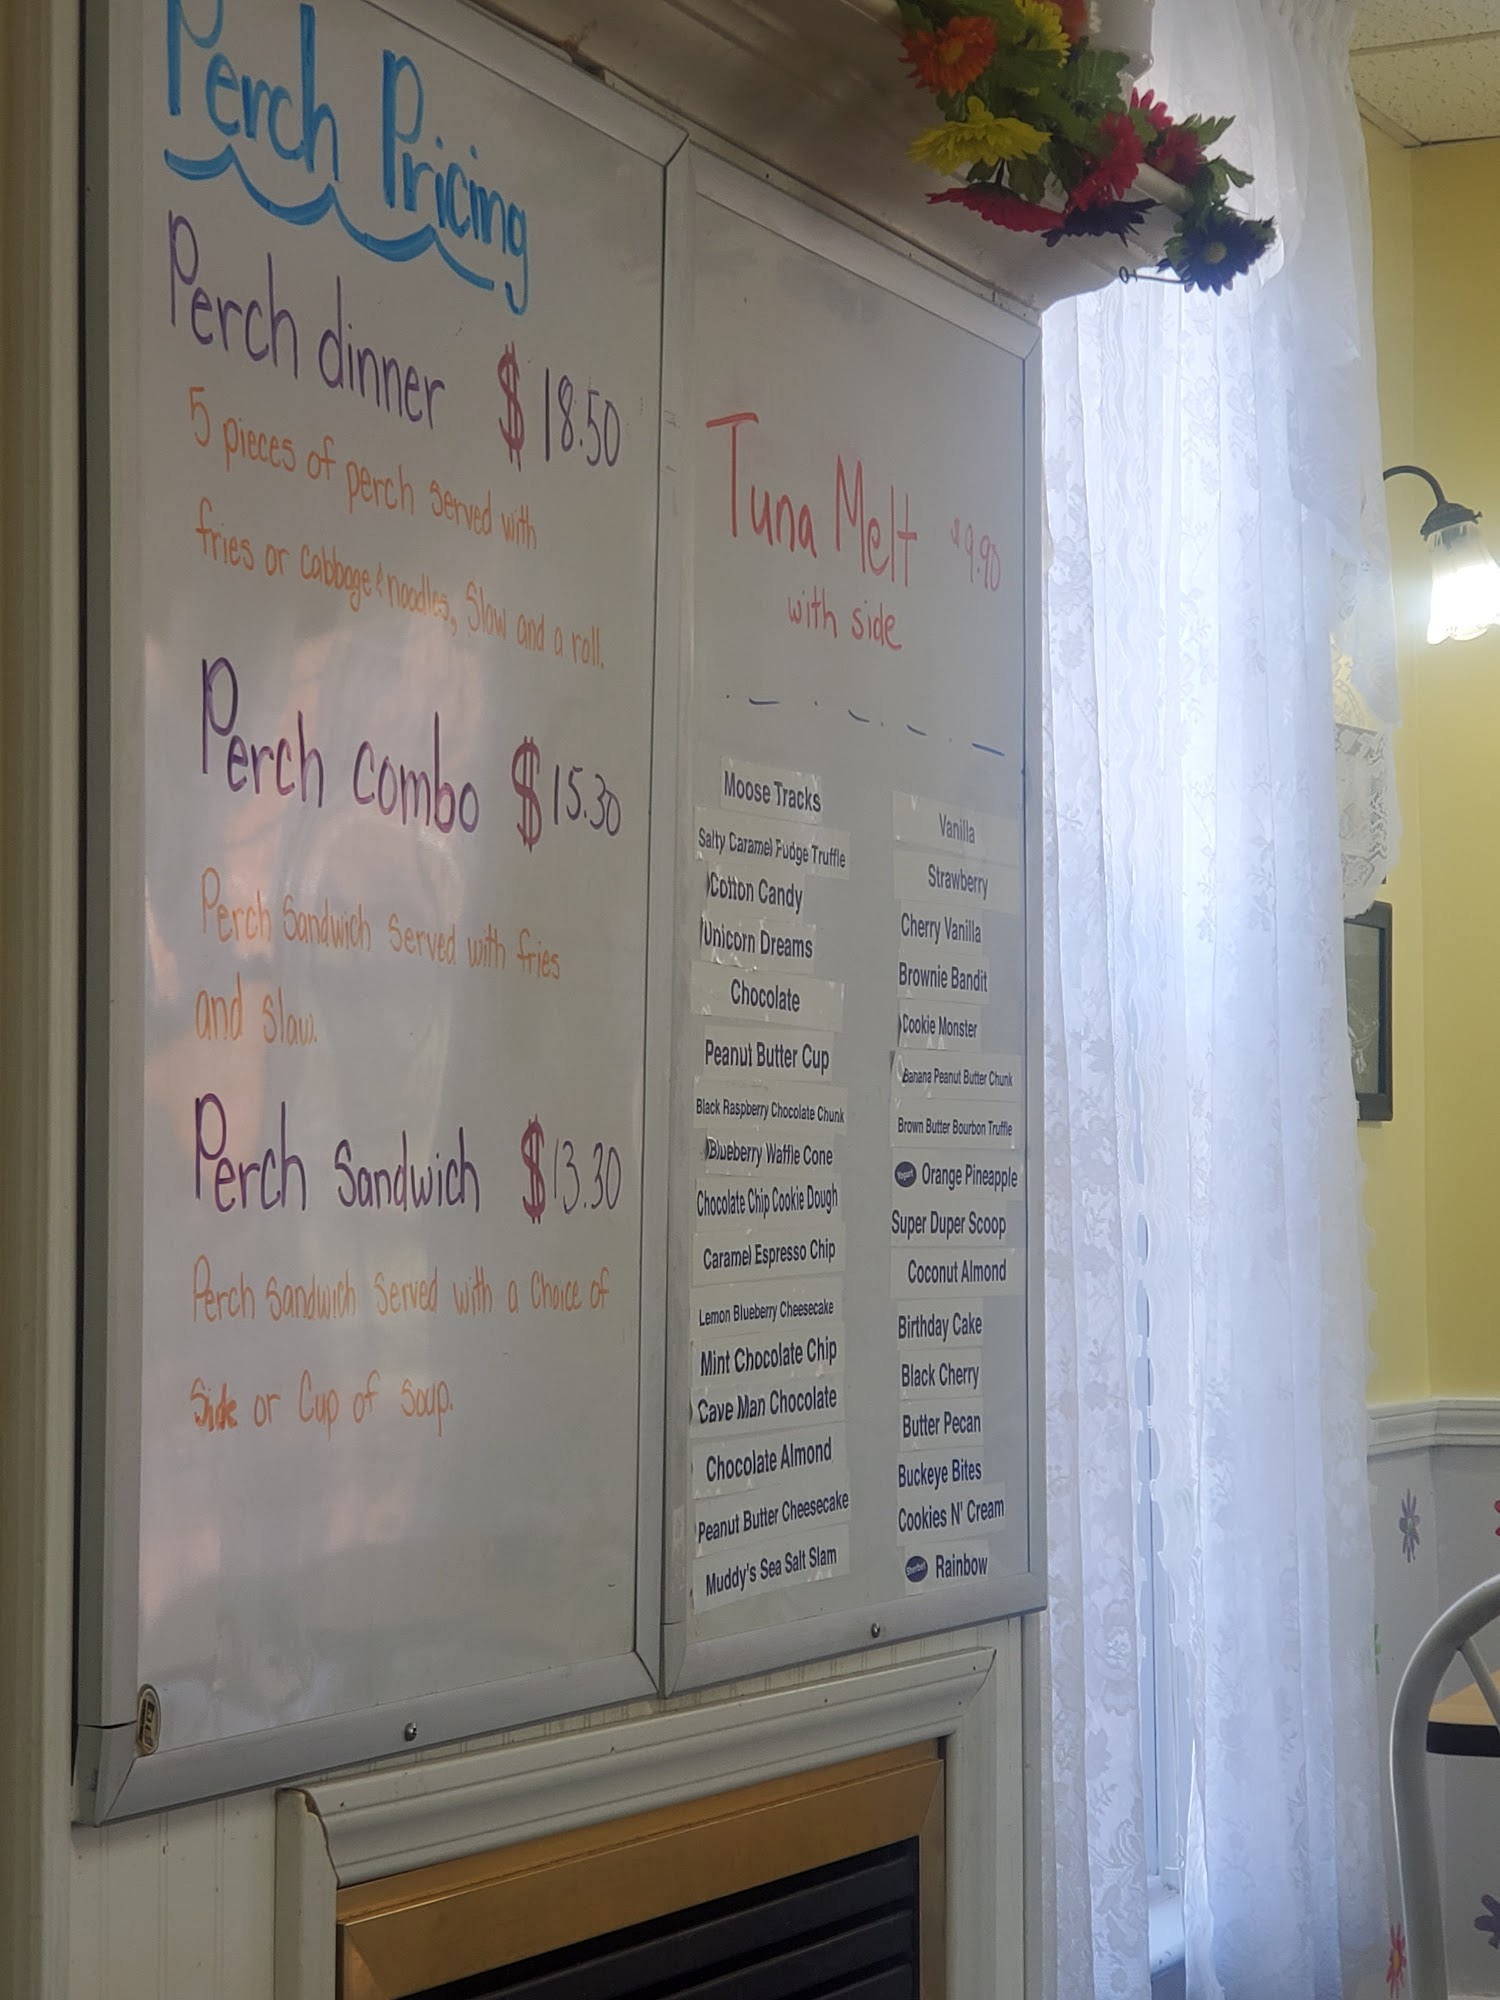 Perch Pricing
Perch dinner $18.50
5 pieces of perch served with
fries or cabbage & noodles, Slaw and a roll.
Perch combo $15.30
Perch Sandwich served with fries
and slaw.
Perch Sandwich $13.30
Perch Sandwich served with a choice of
Side or Cup of soup.
Tuna Melt $9.90
with side
Moose Tracks
Salty Caramel Fudge Truffle
Cotton Candy
Unicorn Dreams
Chocolate
Peanut Butter Cup
Black Raspberry Chocolate Chunk
Blueberry Waffle Cone
Chocolate Chip Cookie Dough
Caramel Espresso Chip
Lemon Blueberry Cheesecake
Mint Chocolate Chip
Cave Man Chocolate
Chocolate Almond
Peanut Butter Cheesecake
Muddy's Sea Salt Slam
Vanilla
Strawberry
Cherry Vanilla
Brownie Bandit
Cookie Monster
Banana Peanut Butter Chunk
Brown Butter Bourbon Truffle
Yogurt Orange Pineapple
Super Duper Scoop
Coconut Almond
Birthday Cake
Black Cherry
Butter Pecan
Buckeye Bites
Cookies N' Cream
Sherbet Rainbow